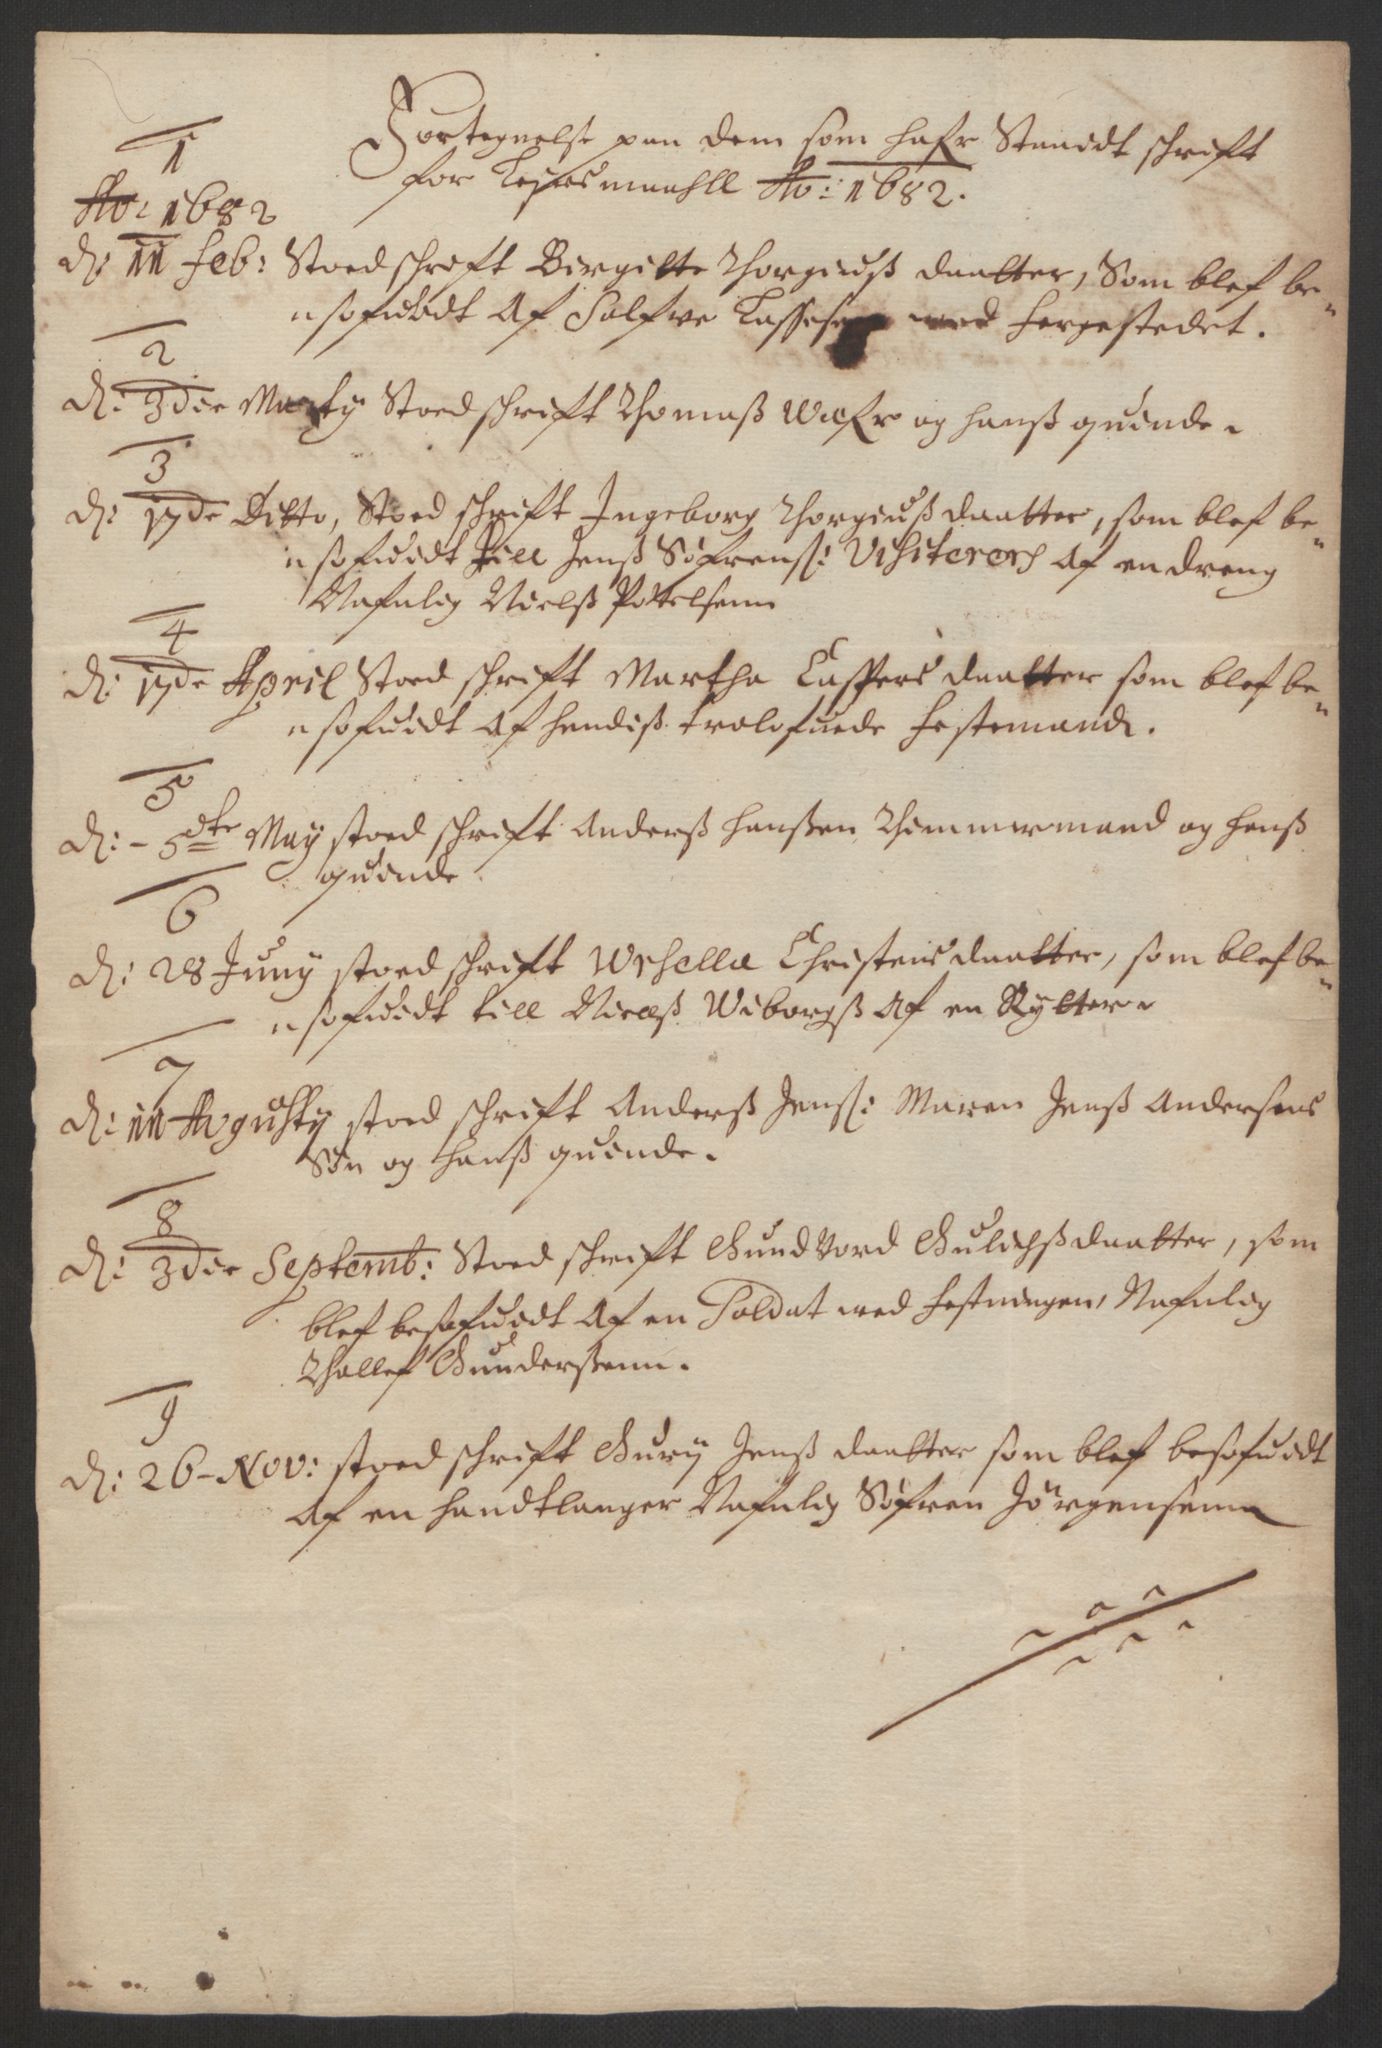 Fortegnelse paa dem som hafr Staaidt schrift
for Leyersmaahll Ao: 1682.
1
Ao: 1682
d: 11 feb: Stoed schrift Birgitte Thorgiuß daatter, Som blef be=
=sofuidt Af Salfve Lassesen wed fergestedet.
2
d: 3die Marty Stoed schrift Thomaß Wefr og hanß quinde.
3
d: 17de Ditto, Stoed schrift Ingeborg Thorgiuß daatter, som blef be=
=sofuidt till Jenß Söfrenß: Visiterers Af en dreng
Nafnlig Nielß Pottelsenn
4
d: 17de April Stoed schrift Martha Caspers daatter som blef be=
=sofuidt Af hendiß trolofuede festemand.
5
d: - 5te May stoed schrift Anderß Hanßen Thimmermand og hanß
quinde
6
d: 28 Juny stoed schrift Wrsella Christens daatter, som blef be=
=sofuidt till Nielß Wiborgß Af en Rytter.
7
d: 11 Avgusty stoed schrift Anderß Jenß: Maren Jenß Andersens
Sön og hanß quinde.
8
d: 3die Septemb: Stoed schrift Gundvord Gulichß daatter, som
blef besofuidt Af en Soldat wed festningen, Nafnlig
Thollef Gunderßenn.
9
d: 26 - Nov: stoed schrift Gury Jenß daatter som blef besofuidt
Af en handtlanger Nafnlig Söfren Jörgensenn